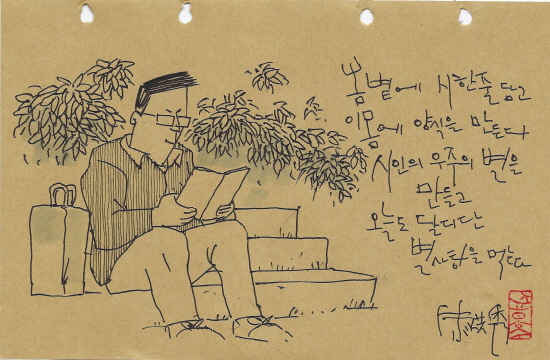 봄볕에 시 한줄 담고
이봄에 양식을 만든다
시인의 우주의 별을
만들고
오늘도 달디단
별사탕을 먹는다